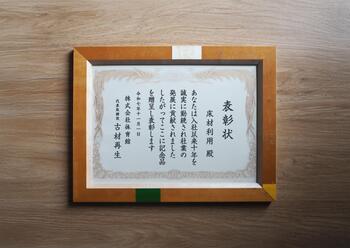 表彰状
床材利用 殿
あなたは入社以来十年を
誠実に勤続され社業の
発展に貢献されました
したがってここに記念品
を贈呈し表彰します
令和七年十一月一日
株式会社体育館
代表取締役 古材再生